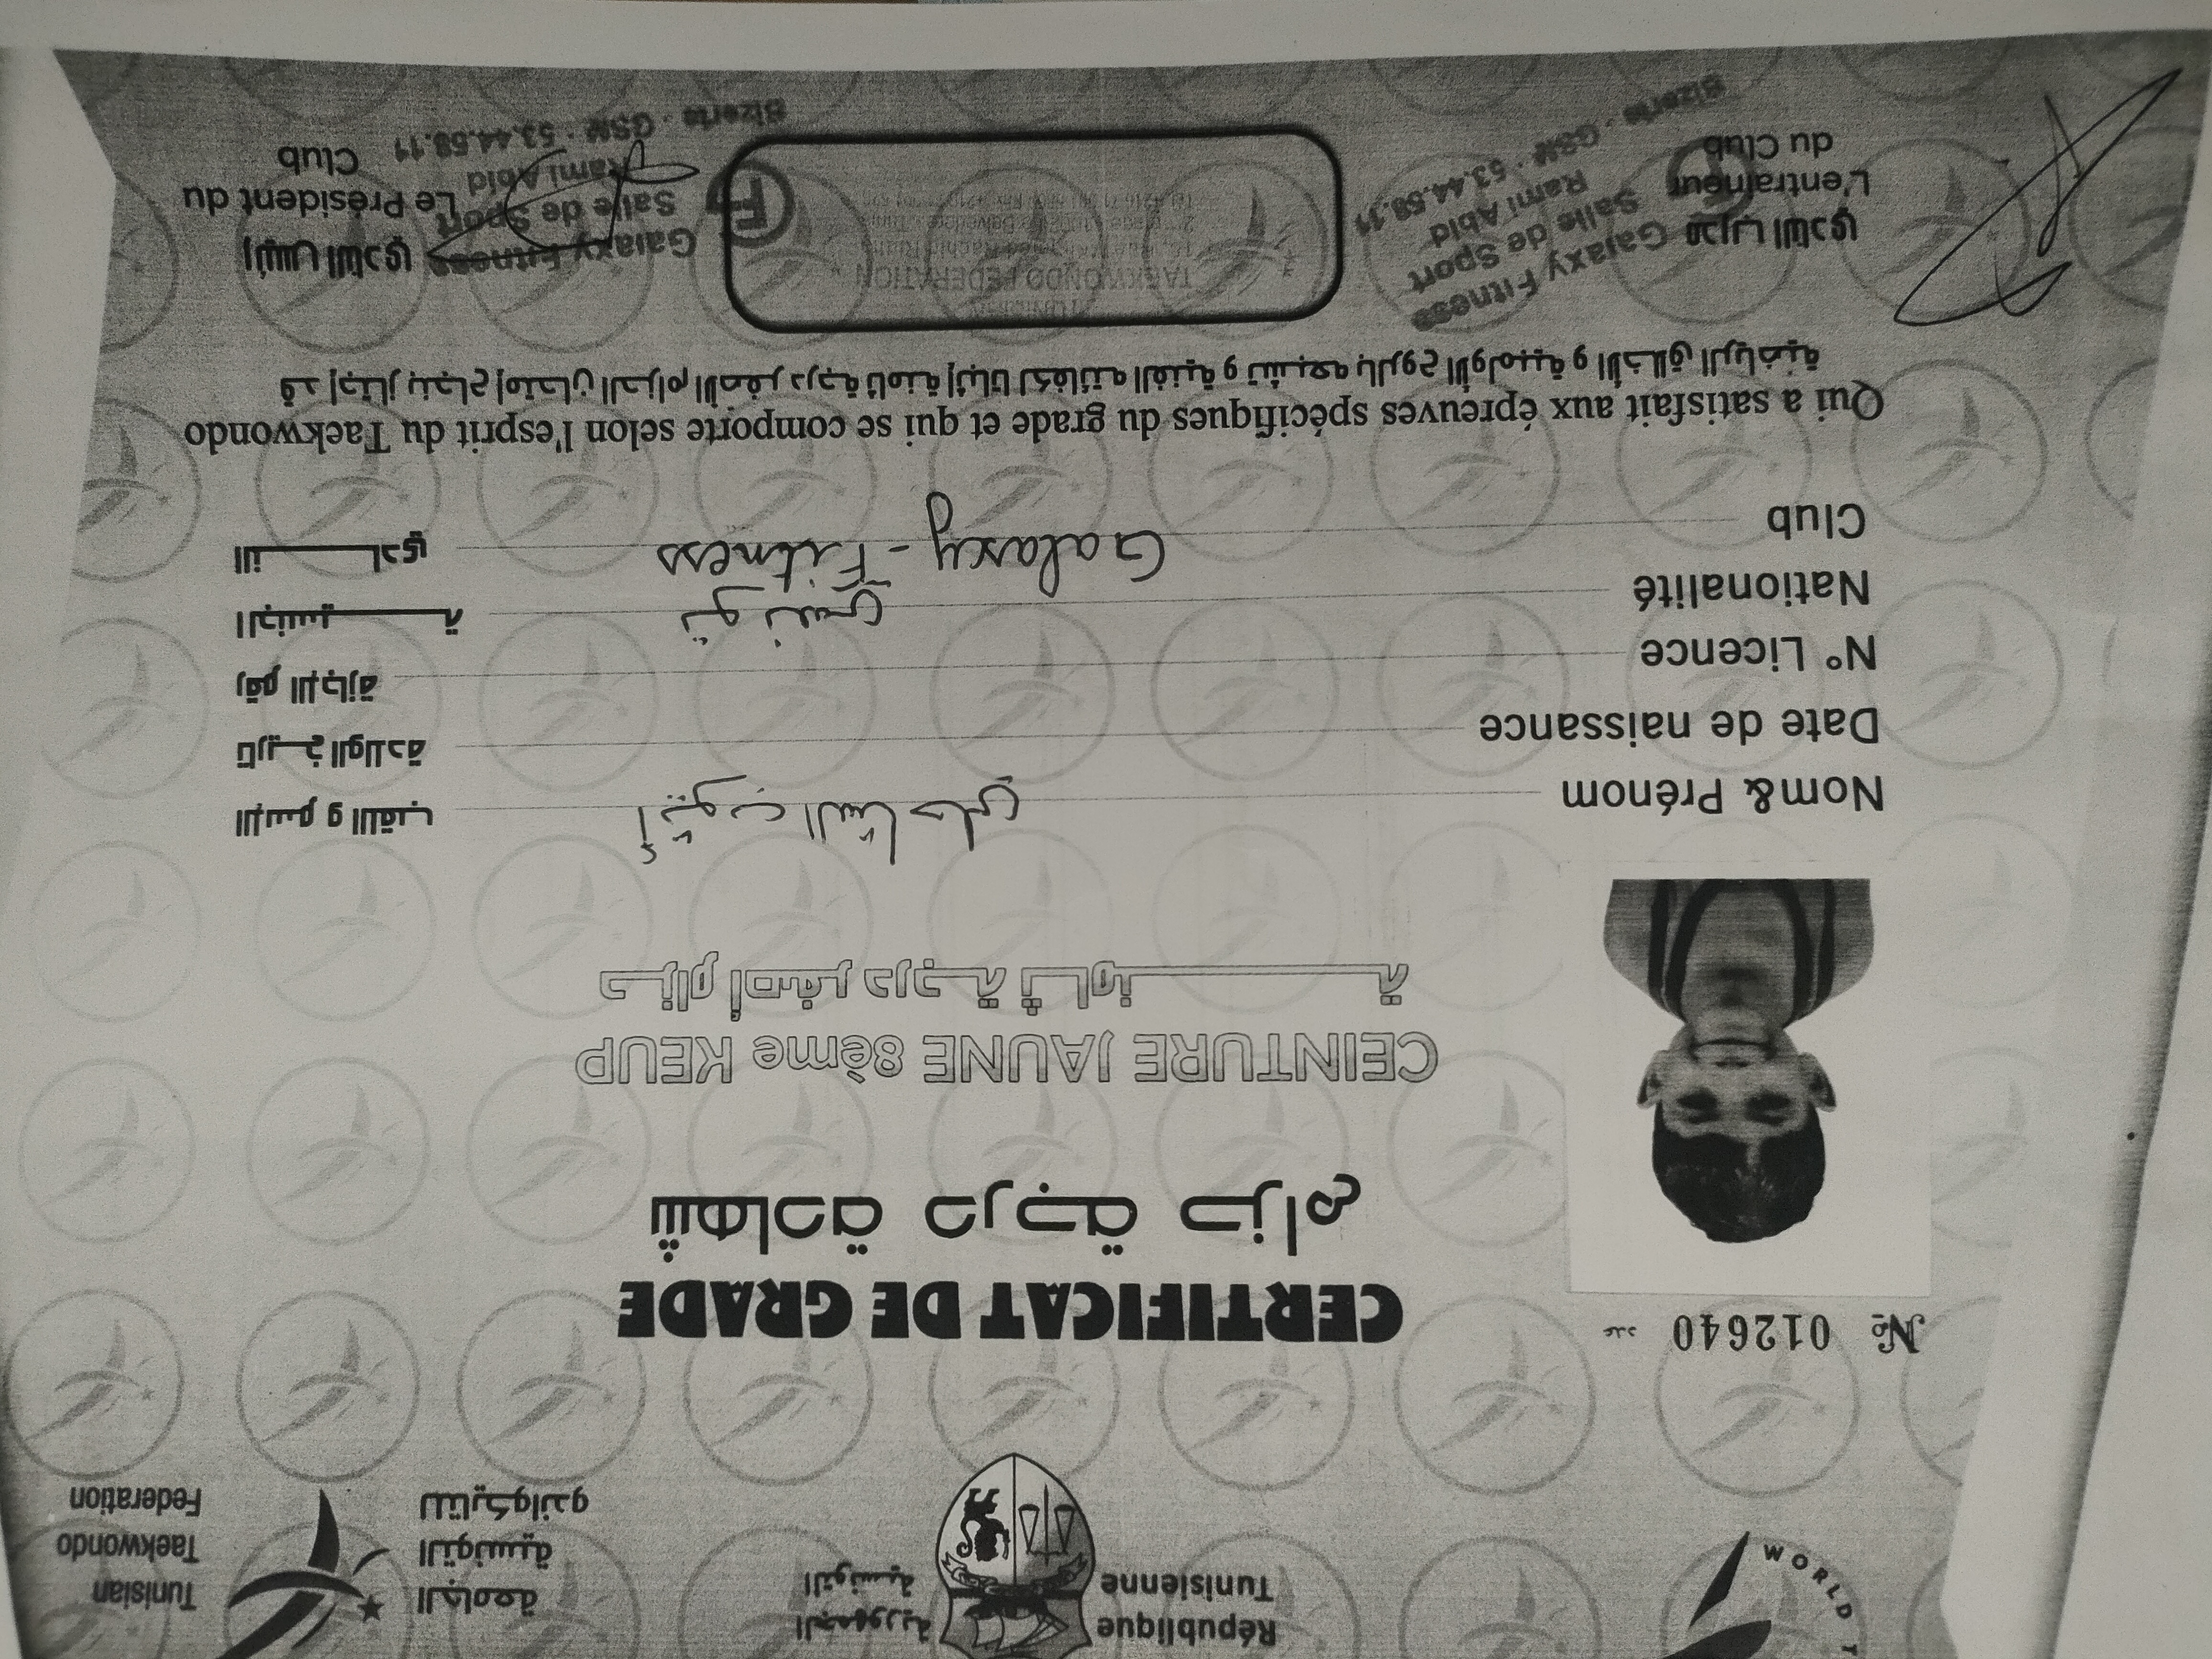 WORLD T
République
Tunisienne
الجمهورية
التونسية
الجامعة
التونسية
للتايكواندو
Tunisian
Taekwondo
Federation
№ 012640 عدد
CERTIFICAT DE GRADE
شهادة درجة حزام
CEINTURE JAUNE 8ème KEUP
حزام أصفر درجة ثامنة
Nom& Prénom أيوب الشاحلي الإسم و اللقب
Date de naissance تاريخ الولادة
N° Licence رقم الإجازة
Nationalité تونسي الجنسية
Club Galaxy-Fitness النادي
Qui a satisfait aux épreuves spécifiques du grade et qui se comporte selon l'esprit du Taekwondo
قد إجتاز بنجاح إمتحان الحزام الأصفر درجة ثامنة إثباتا لكفائته الفنية و تشبعه بالروح الأولمبية و الأخلاق الرياضية
مدرب النادي
L'entraineur
du Club
Galaxy Fitness
Salle de Sport
Rami Abid
Bizerte - GSM : 53.44.58.11
TAEKWONDO FEDERATION
Galaxy Fitness
Salle de Sport
Rami Abid
Bizerte - GSM : 53.44.58.11
رئيس النادي
Le Président du
Club